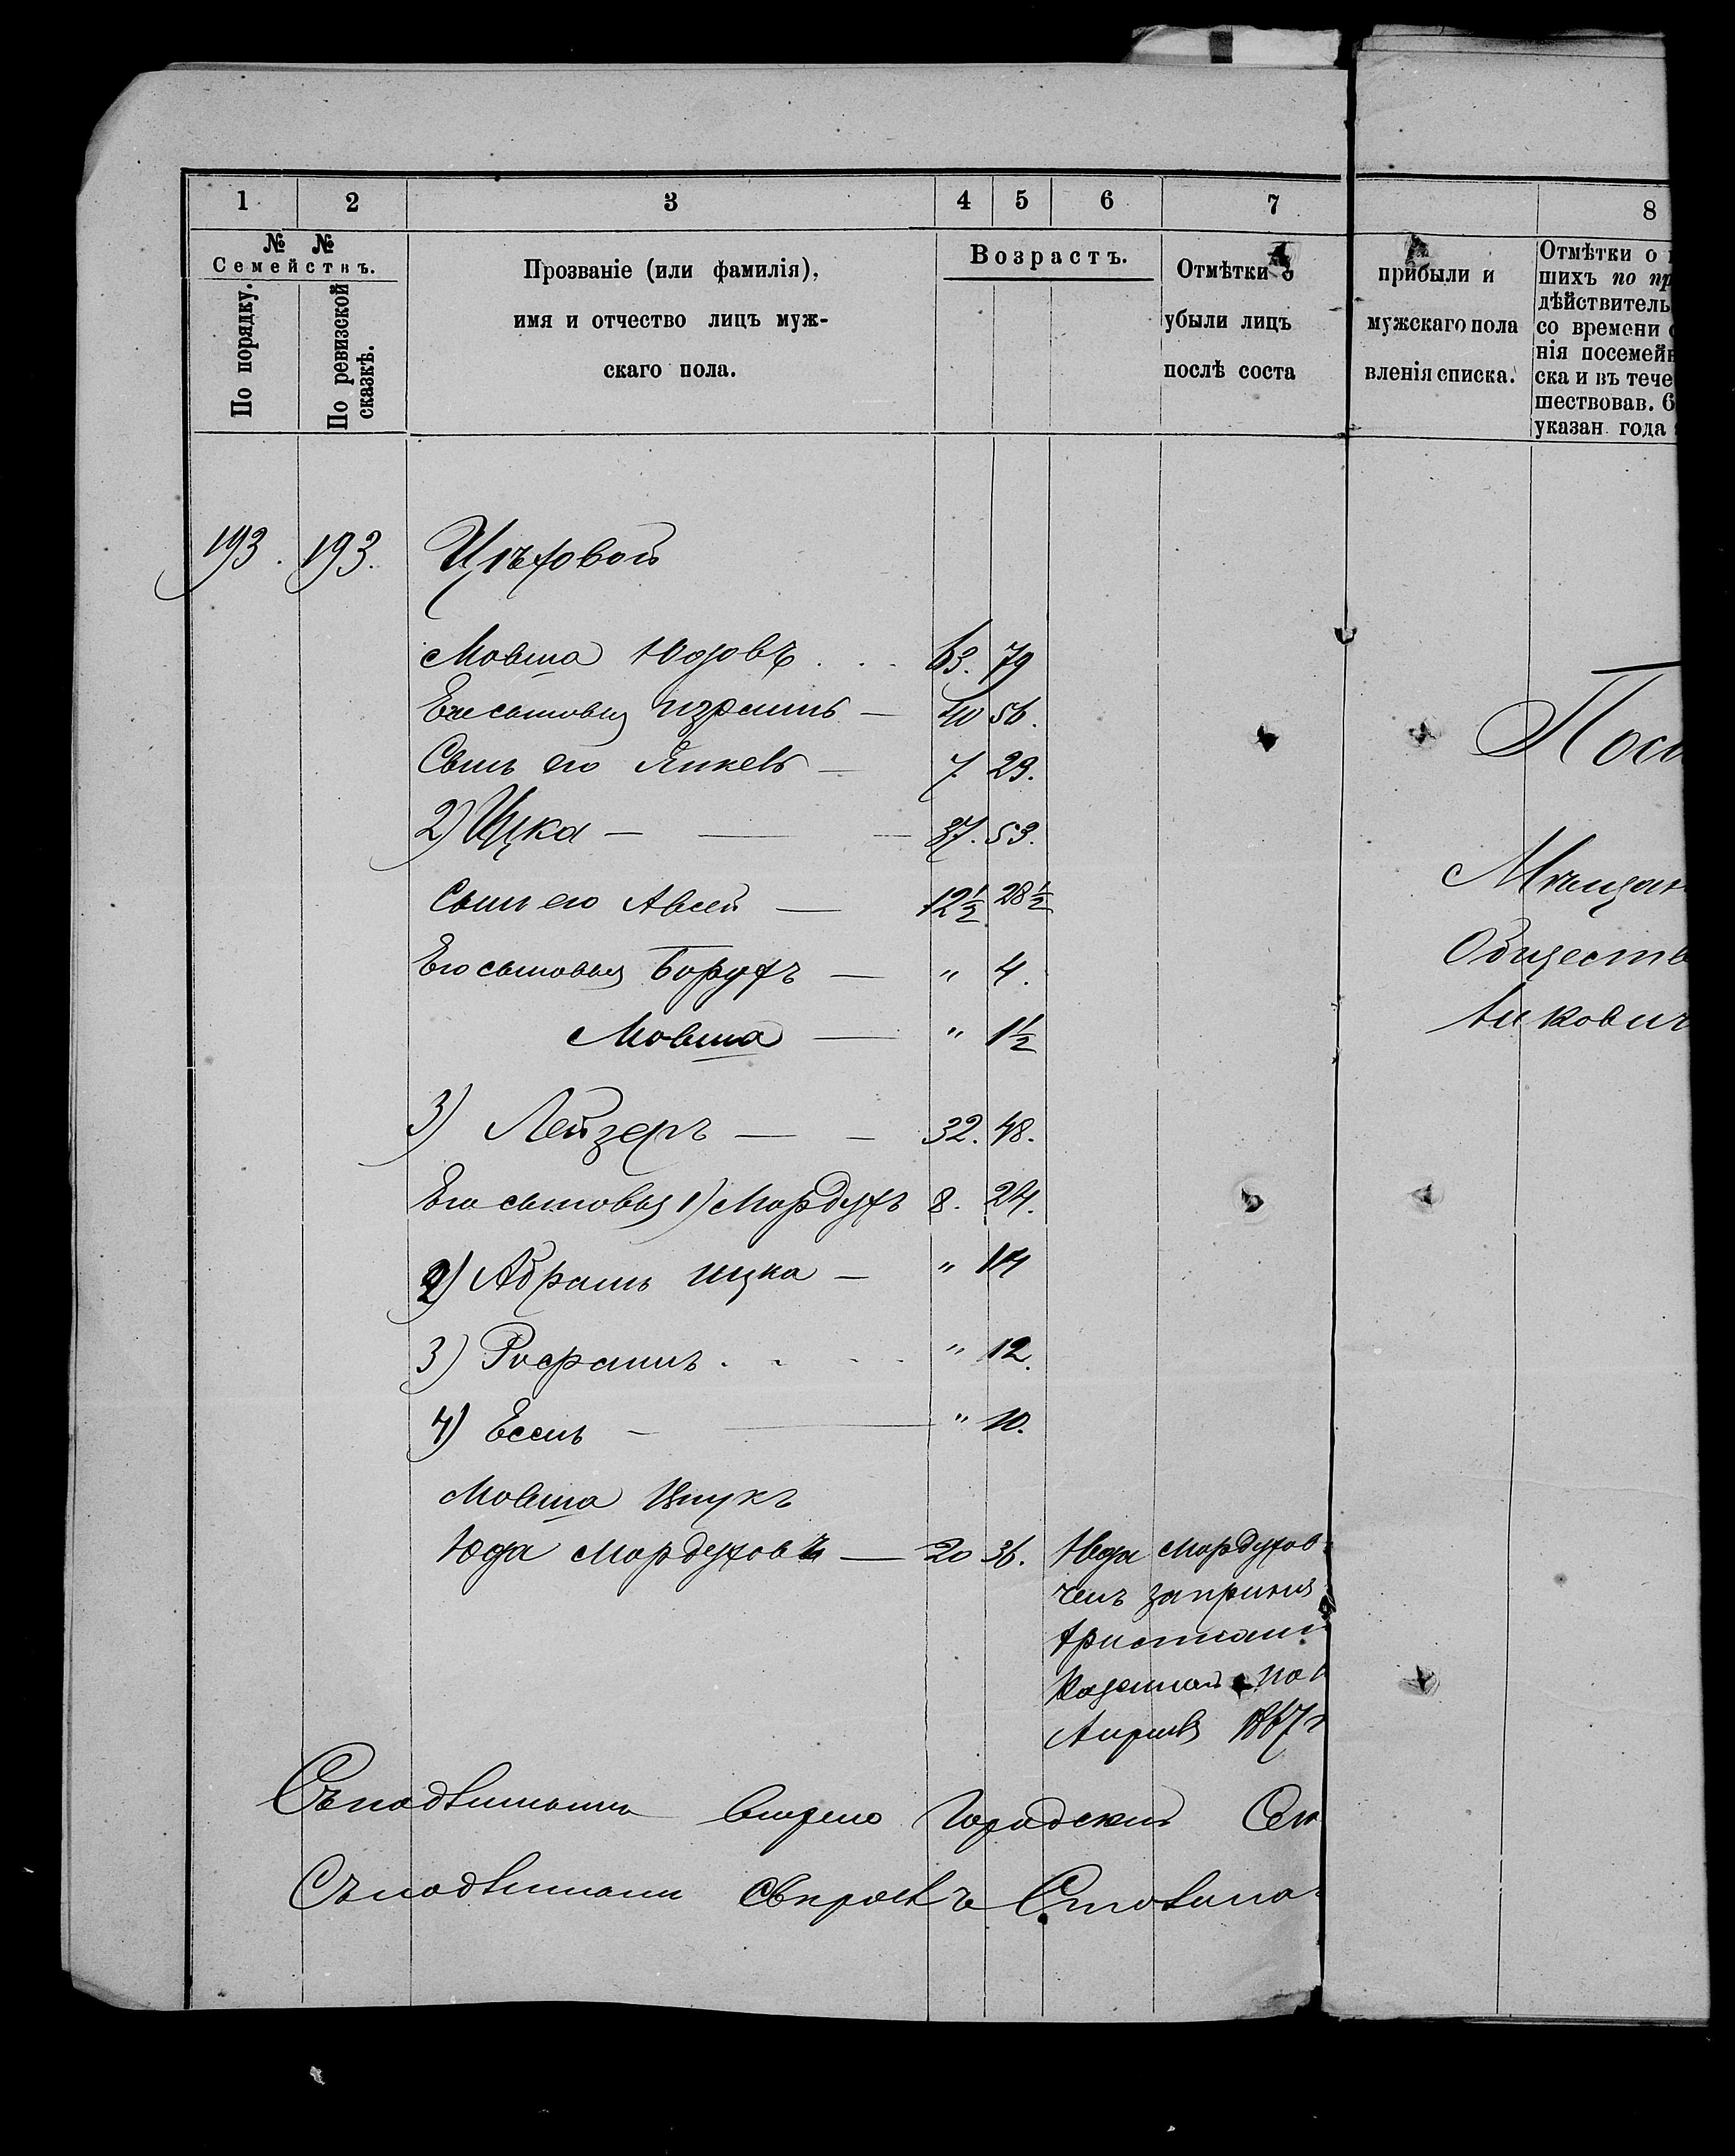 1 2 3 4 5 6 7 8
№ № Семействъ.
По порядку.
По ревизской сказкѣ.
Прозваніе (или фамилія),
имя и отчество лицъ муж-
скаго пола.
Возрастъ.
Отмѣтки о
убыли лицъ
послѣ соста
прибыли и
мужскаго пола
вленія списка.
Отмѣтки о
шихъ по пр
дѣйствитель
со времени
нія посемейн
ска и въ тече
шествовав. 6
указан. года
193. 193.
Мовша Юдовъ . . . 63. 79
Его сыновья Израиль — 40 56.
Сынъ его Янкель — 7. 23.
2) Ицка — 37. 53.
Сынъ его Авсей — 12½ 28½
Его сыновья Борухъ — " 4.
Мовша — " 1½
3) Лейзеръ — — 32. 48.
Его сыновья 1) Мордухъ 8. 24.
2) Абрамъ Ицка — " 14
3) " 12.
4) — " 10.
Мовша внукъ
Юда Мордуховъ — 20 36.
Юда Мордухов
ченъ за приня
христіани
Казенной По
Апрѣля 1867 г
Съ подлиннымъ вѣрно Городской
Съ подлиннымъ
Мѣщан
Обществ